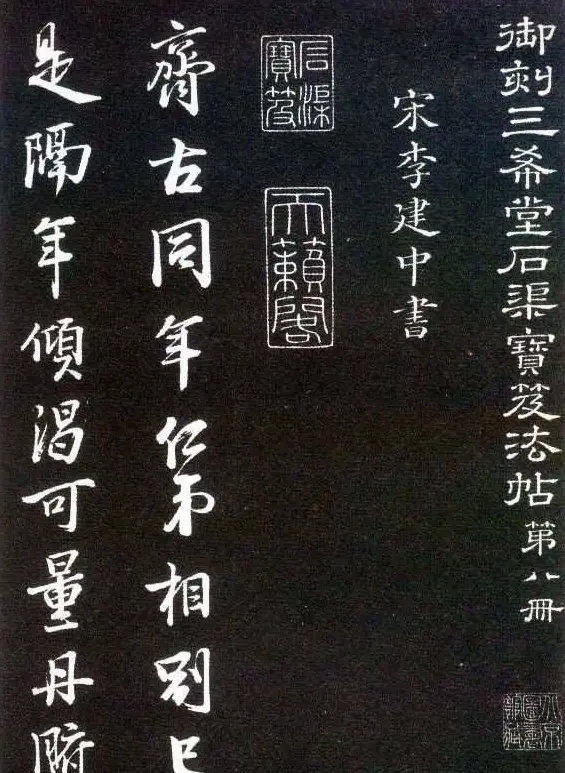 御刻三希堂石渠寶笈法帖第八冊
北京圖書館藏
宋李建中書
石渠寶笈
天籟閣
齊古同年仁弟相別已
是隔年傾渴可量丹腑